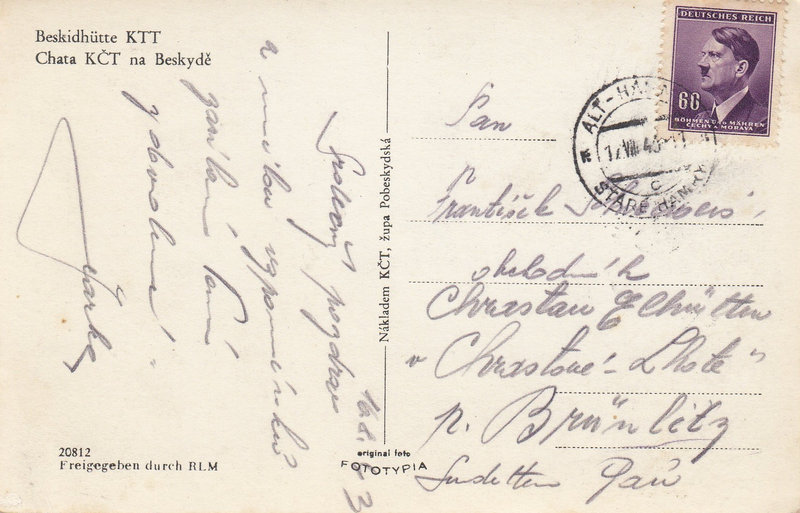 Beskidhütte KTT
Chata KČT na Beskydě
Srdečný pozdrav
a milou vzpomínku
zasílám Vám
z dovolené
Jarka
16.8.43
20812
Freigegeben durch RLM
Nákladem KČT, župa Pobeskydská
original foto
FOTOTYPIA
DEUTSCHES REICH
60
BÖHMEN u. MÄHREN
ČECHY A MORAVA
ALT-HAM
17.VIII.43
C
STARÉ HAMRY
Pan
p
František
obchodník
Chrastau Elhütten
v Chrastové-Lhotě
p. Brünlitz
Sudetten Gau